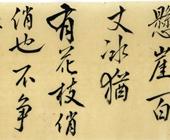 懸崖百
丈冰猶
有花枝俏
俏也不争